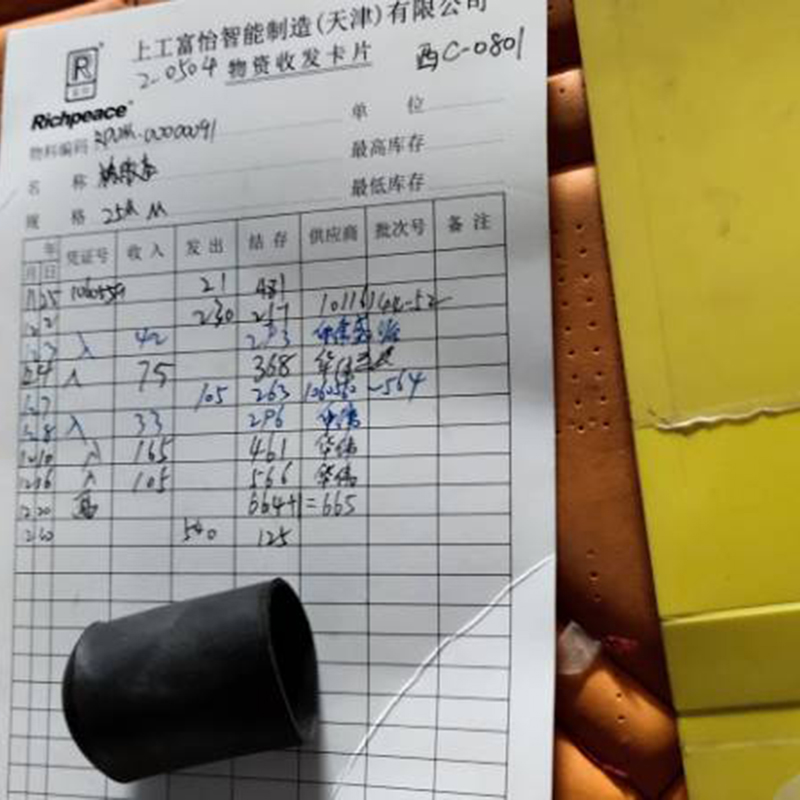 上工富怡智能制造(天津)有限公司
2-0504 物资收发卡片 西C-0801
R
Richpeace
物料编码 单 位
名 称 最高库存
规 格 25 M 最低库存
年 凭证号 收入 发出 结存 供应商 批次号 备注
月 日
21 481
230 217
12 3 入 42
12 4 入 75 368 华伟
12 7 105 263 1060560~564
12 8 入 33 296 华伟
12 10 入 165 461 华伟
12 16 入 105 566 华伟
12 20 664+1=665
540 125